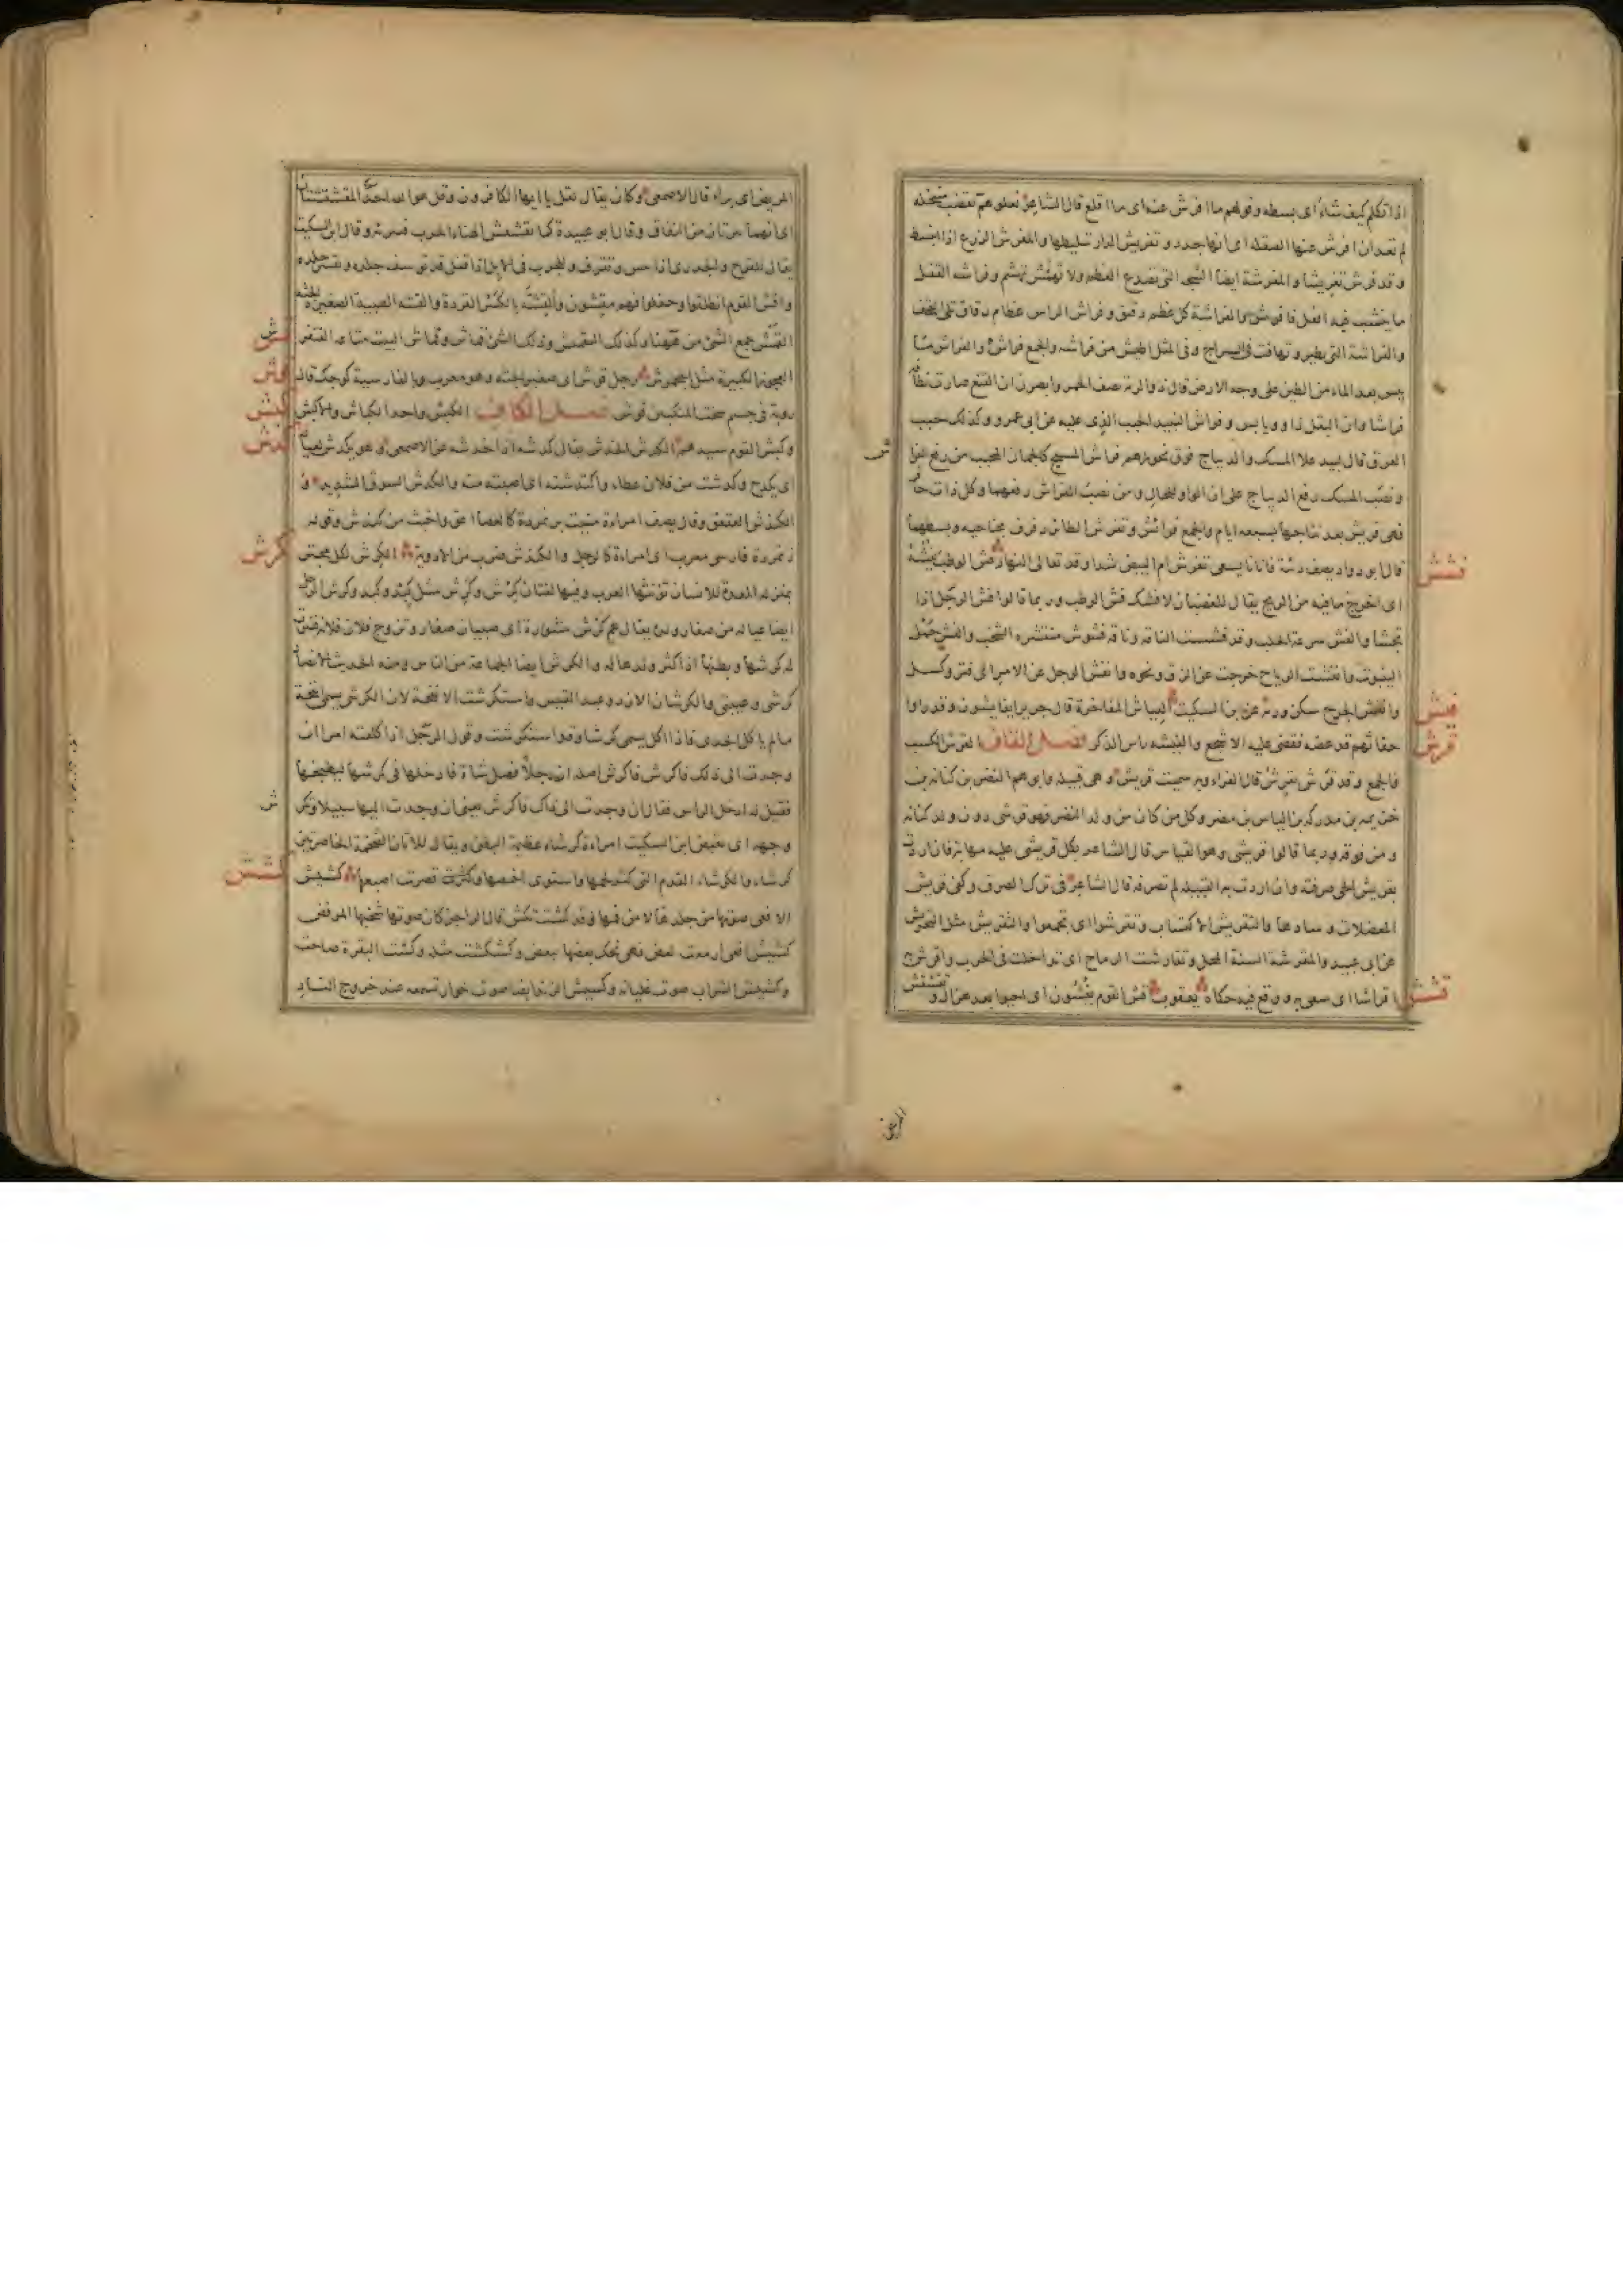 اذا تكلم كيف شاء اى بسطه وقولهم ما افرش عنه اى ما اقلع قال الشاعر نعلوهم بقضب منتخله
لم تعد ان افرش عنها الصقله اى انها جدد وتفريش الدار تبليطها والمفرش الزرع اذا انبسط
وقد فرش تفريشا والمفرشة ايضا الشجة التى تصدع العظم ولا تهشم وفراشة القفل
ما ينشب فيه اقفل فافرش والفراشة كل عظم رقيق وفراش الراس عظام رقاق تلى القحف
والفراشة التى تطير وتهافت فى السراج وفى المثل اطيش من فراشه والجمع فراش والفراش ما
يبس بعد الماء من الطين على وجه الارض قال ذو الرمة يصف الحمر وابصرن ان النقع صارت نطافه
فراشا وان البقل ذاو ويابس وفراش النبيذ الحبب الذى عليه عن ابى عمرو وكذلك حبب
العرق قال لبيد علا المسك والديباج فوق نحورهم فراش المسيح كالجمان المحبب من رفع الفراش
ونصب المسك رفع الديباج على ان الواو للحال ومن نصب الفراش رفعهما وكل ذات حافر
فهى فريش بعد نتاجها بسبعة ايام والجمع فرائش وتفرش الطائر رفرف بجناحيه وبسطهما
قال ابو دواد يصف ربئة فاتانا يسعى تفرش ام البيض شدا وقد تعالى النهار فش الوطب يفشه
اى اخرج ما فيه من الريح يقال للغضبان لافشنك فش الوطب وربما قالوا فش الرجل اذا
تجشا والفش سرعة الحلب وقد فششت الناقة وناقة فشوش منتشره الشخب والفش حمل
الينبوت وانفشت الرياح خرجت عن الزق ونحوه وانفش الرجل عن الامر اى فتر وكسل
وانفش الجرح سكن ورمه عن ابن السكيت الفياش المفاخرة قال جرير ايفايشون وقد راوا
حفاثهم قد عضه فقضى عليه الاشجع والفيشه راس الذكر فصل القاف القرش الكسب
والجمع وقد قرش يقرش قال الفراء وبه سميت قريش وهى قبيلة وابوهم النضر بن كنانة بن
خزيمه بن مدركه بن الياس بن مضر وكل من كان من ولد النضر فهو قرشى دون ولد كنانه
ومن فوقه وربما قالوا قريشى وهو القياس قال الشاعر بكل قريشى عليه مهابة فان اردت
بقريش الحى صرفته وان اردت به القبيلة لم تصرفه قال الشاعر فى ترك الصرف وكفى قريش
المعضلات وسادها والتقريش الاكتساب وتقرشوا اى تجمعوا والتقريش مثل التحريش
عن ابى عبيد والمقرشة السنة المحل وتقارشت الرماح اى تداخلت فى الحرب واقرش به
اقراشا اى سعى به ووقع فيه حكاه يعقوب قش القوم يقشون اى احيوا بعد هزال وتقشقش
فشش
فيش
قرش
قشش
ش
المريض
المريض اى برا قال الاصمعى وكان يقال لقل يا ايها الكافرون وقل هو الله احد المقشقشتان
اى انهما تبرئان من النفاق وقال ابو عبيدة كما يقشقش الهناء الجرب فيبرئه وقال ابن السكيت
يقال للقرح والجدرى اذا يبس وتقرف وللجرب فى الابل اذا قفل قد توسف جلده وتقشر جلده
واقش القوم انطلقوا وجفلوا فهم مقشون والقشه بالكسر القردة والقشه الصبية الصغيرة الجثه
القمش جمع الشئ من ههنا وكذلك التقميش وذلك الشئ قماش وقماش البيت متاعه القنفرش
العجوز الكبيرة مثل الجحمرش رجل قوش اى صغير الجثه وهو معرب وبالفارسية كوچك قال
روبة فى جسم شخت المنكبين قوش فصل الكاف الكبش واحد الكباش والاكبش
وكبش القوم سيدهم الكدش الخدش يقال كدشه اذا خدشه عن الاصمعى وهو يكدش لعياله
اى يكدح وكدشت من فلان عطاء واكتدشت اى اصبت منه والكدش السوق الشديد و
الكندش العقعق وقال يصف امراءة منيت بزنمردة كالعصا الص واخبث من كندش وقوله
زنمردة فارسى معرب اى امراءة كالرجل والكندش ضرب من الادوية الكرش لكل مجتر
بمنزلة المعدة للانسان تؤنثها العرب وفيها لغتان كرش وكرش مثل كبد وكبد وكرش الرجل
ايضا عياله من صغار ولده يقال هم كرش منثورة اى صبيان صغار وتزوج فلان فلانه فنثرت
له كرشها وبطنها اذا كثر ولدها له والكرش ايضا الجماعة من الناس ومنه الحديث الانصار
كرشى وعيبتى والكرشان الازد وعبد القيس واستكرشت الانفحة لان الكرش يسمى انفحة
ما لم ياكل الجدى فاذا اكل يسمى كرشا وقد استكرشت وقول الرجل اذا كلفته امرا ان
وجدت الى ذلك فاكرش فاكرش اصله ان رجلا فصل شاة فادخلها فى كرشها ليطبخها
فقيل له ادخل الراس فقال ان وجدت الى ذاك فاكرش يعنى ان وجدت اليها سبيلا وتكرش
وجهه اى تقبض ابن السكيت امراءة كرشاء عظيمة البطن ويقال للاتان الضخمة الخاصرتين
كرشاء والكرشاء القدم التى كثر لحمها واستوى اخمصها وقصرت اصابعها كشيش
الافعى صوتها من جلدها لا من فيها وقد كشت تكش قال الراجز كان صوت شخبها المرفض
كشيش افعى ازمعت لعض فهى تحك بعضها ببعض وكشكشت مثله وكشت البقرة صاحت
وكشيش الشراب صوت غليانه وكشيش الزند ايضا صوت خوار تسمعه عند خروج النار
قمش
قوش
كبش
كدش
كرش
ش
كشش